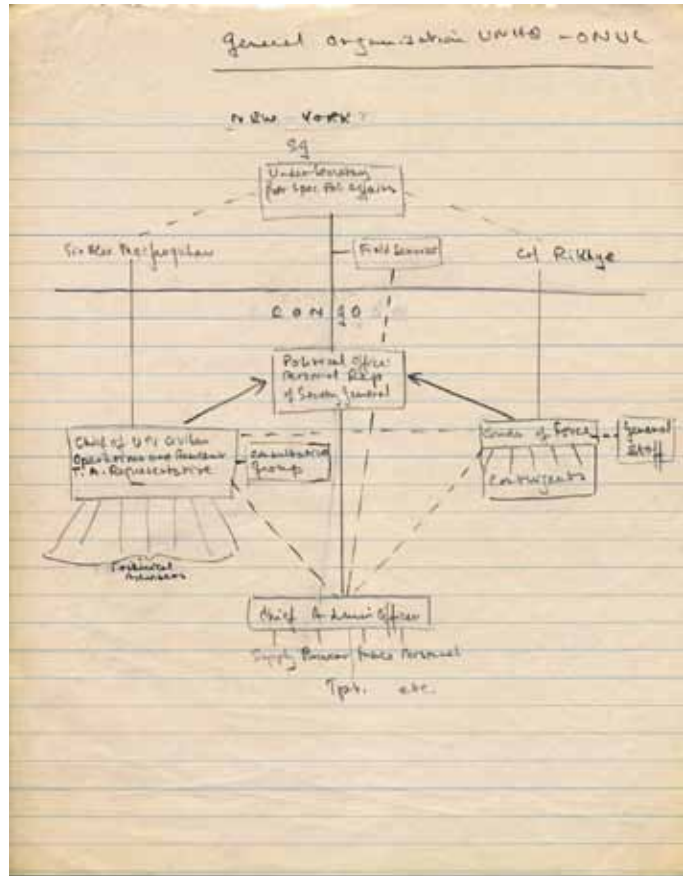 General Organisation UNHQ - ONUC
NEW YORK
SG
Under Secretary
for Spec Pol Affairs
Sir Alex
Field Service
Col Rikhye
CONGO
Political Office
Personal Rep
of Secretary General
Chief of UN Civilian
Operations and
T. A. Representative
Consultative
Group
of Force
General
Staff
Contingents
Technical
Advisers
Chief Admin Officer
Supply Personnel
Tpt. etc.